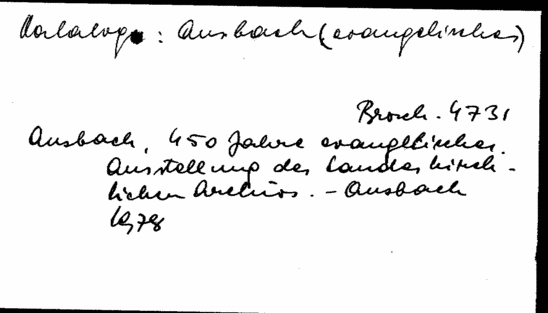 Kataloge : Ansbach (evangelisches)
Brosch. 4731
Ansbach, 450 Jahre evangelisches.
Ausstellung des Landeskirch-
lichen Archivs. - Ansbach
1978